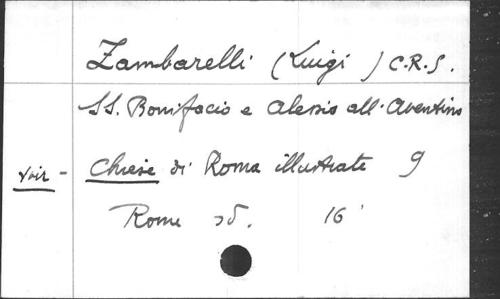 Zambarelli (Luigi) C.R.S.
SS. Bonifacio e Alessio all'Aventino
voir - Chiese di Roma illustrate 9
Rome sd. 16°